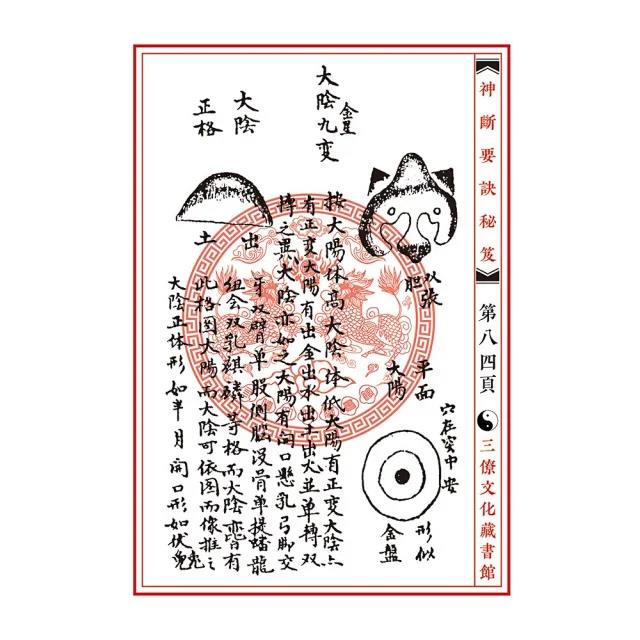 《神斷要訣秘笈》
第八四頁
三僚文化藏書館
双張胆
平面大陽
穴在突中安
形似金盤
大陰九变
金星
按大陽体高大陰体低太陽有正变大陰亦
有正变大陽有出金出水出土出火並单轉双
轉之異大陰亦如之大陽有開口懸乳弓脚交
牙双臂单股側腦没骨单提蟠龍
纽会双乳麒麟等格而大陰亦皆有
此格图大陽而大陰可依图而像推之
大陰正体形如半月開口形如伏兔
大陰
正格
出土